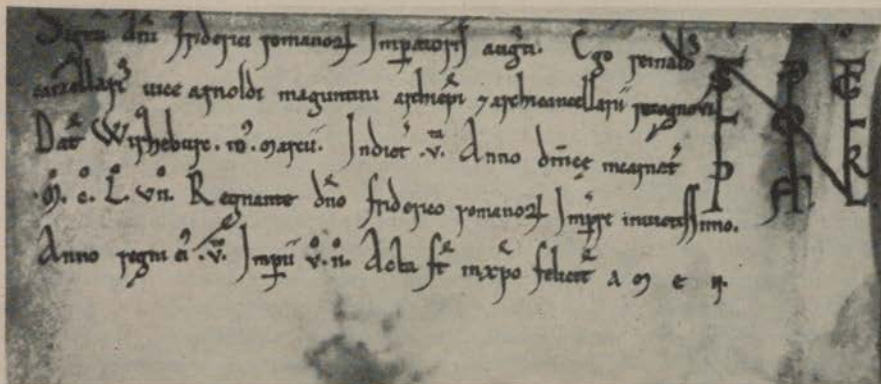 Signū dn̄i friderici romanoꝝ Imp̄atoris augti. Ego reinaldꝰ
cancellariꝰ uice arnoldi maguntini archiep̄i ⁊ archicancellarii recognoui.
Dat̄ Wirzeburc. Marcii. Indict̄ .v. Anno dn̄ice incarnat̄
.M. C. L. VII. Regnante dn̄o friderico romanoꝝ Imp̄re inuictissimo.
Anno regni eiꝰ .v. Imperii v. II. Acta sт̄ in xp̄o felicit̄ A M E N.